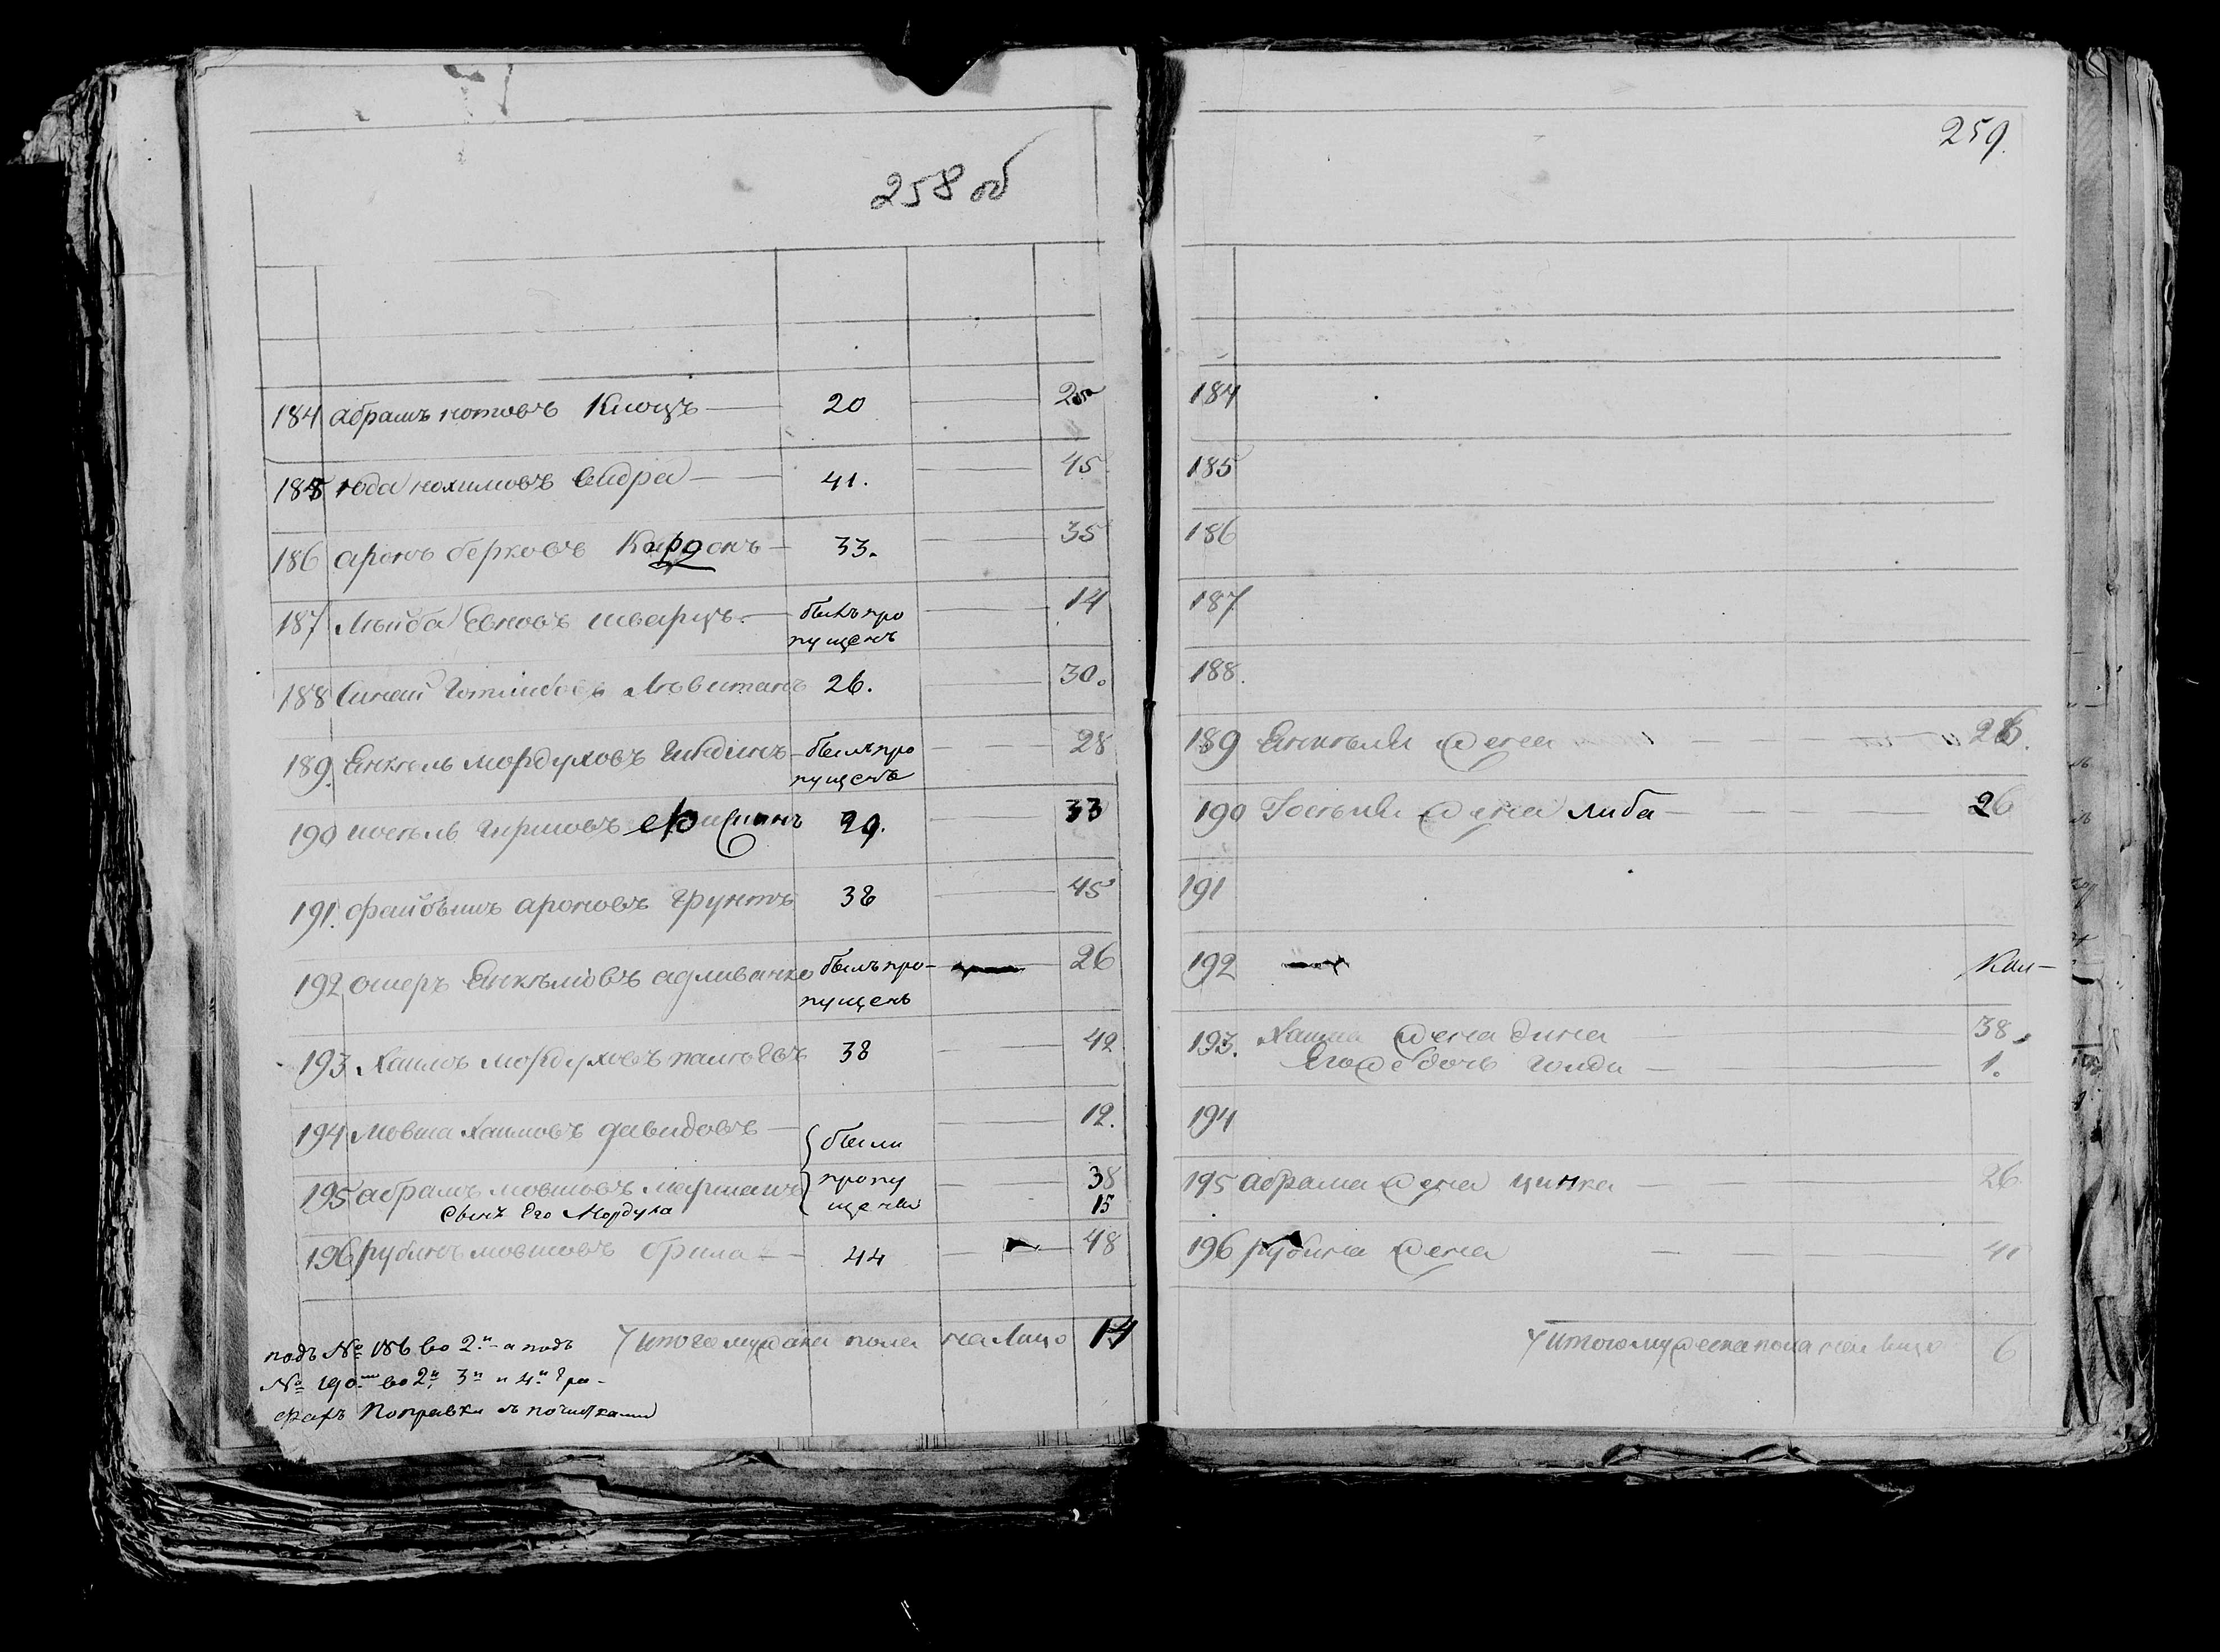 258 об
184 Абрамъ нотовъ Клоцъ — 20 — 25
185 года нохимовъ видра — 41. — 45
186 аронъ берковъ — 33. — 35
187 Лейба Евновъ шварцъ — былъ про — 14
пущенъ
188 Левитанъ 26. — 30.
189. Енкель Мордуховъ — былъ про — 28
пущенъ
190 иосель Гиршовъ 29. — 33
191. файбишъ ароновъ Грунтъ 38 — 45
192 ошеръ Енкелиовъ адливанке былъ про- 26
пущенъ
193 Хаимъ Мордуховъ 38 — 42
194 Мовша Хаимовъ давидовъ — были — 12.
195 абрамъ мовшовъ пропу — 38
Сынъ Его Мордуха щены 15
196 рубинъ мовшовъ брила — 44 — 48
Итого мужска пола на Лицо 14
подъ № 186 во 2й а подъ
№ 190мъ во 2й, 3й и 4й Гра-
фахъ Поправки съ почистками
259.
184
185
186
187
188.
189 Енкеля жена — 26.
190 Госеля жена либа — 26
191
192
193. Хаима жена дина — 38.
Егоже дочь голда — 1.
194
195 абрама жена ципка — 26
196 рубина жена — 41
Итого женска пола на лицо 6